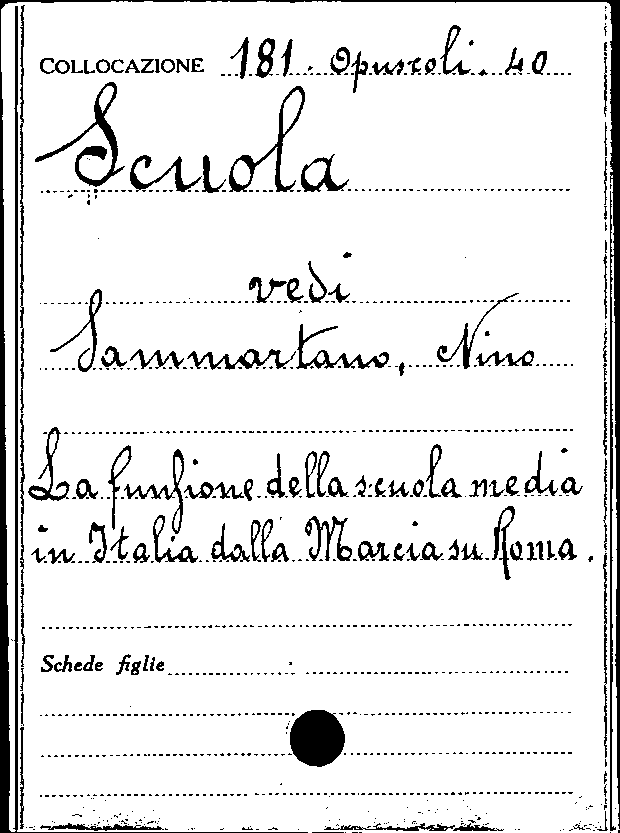 COLLOCAZIONE 181. Opuscoli. 40
Scuola
vedi
Sammartano, Nino
La funzione della scuola media
in Italia dalla Marcia su Roma.
Schede figlie